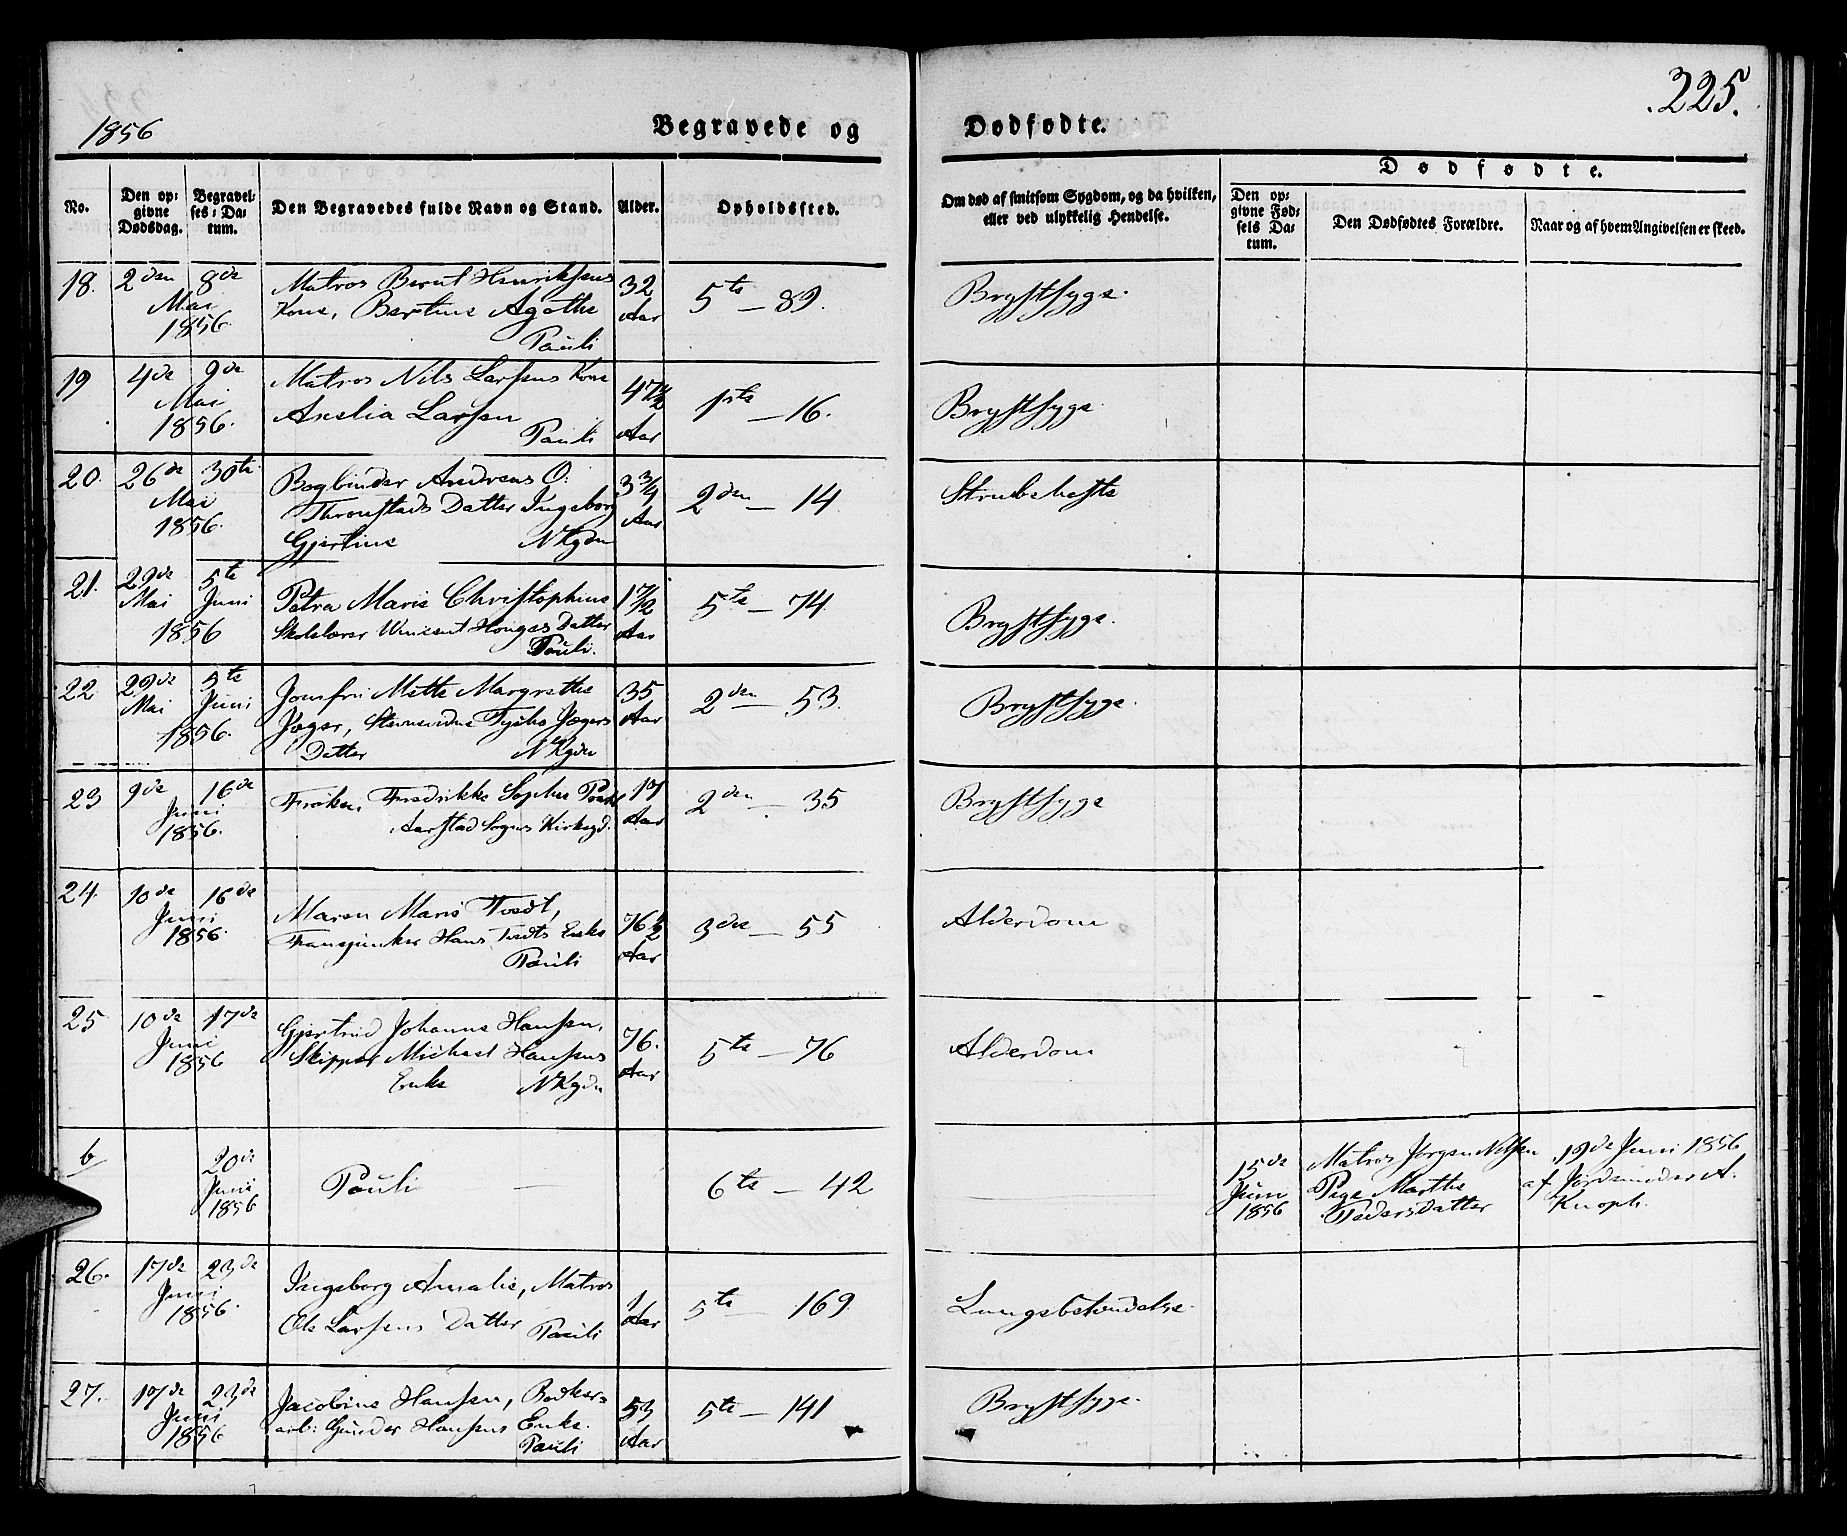 1856
Begravede og Dødfødte.
.225.
No.
Den opgivne Dødsdag.
Begravelses-Datum.
Den Begravedes fulde Navn og Stand.
Alder.
Opholdssted.
Om død af smitsom Sygdom, og da hvilken, eller ved ulykkelig Hendelse.
Dødfødte.
Den opgivne Fødsels Datum.
Den Dødfødtes Forældre.
Naar og af hvem Angivelsen er skeed.
18. 2den 8de Mai 1856.
Matros Bernt Henriksens
Kone, Bertine Agathe
Pauli
32 Aar
5te – 89.
Brystsyge.
19 4de 9de Mai 1856.
Matros Nils Larsens Kone
Larsen
Pauli
Aar
1ste – 16.
Brystsyge
20. 26de 30te Mai 1856.
Bogbinder Andreas O:
Thronstads Datter Ingeborg
Gjertine N Kgden
3 3/4 Aar
2den – 14
Strubehoste
21. 29de Mai 5te Juni 1856
Petra Marie Christophine
Skolelærer Vincent Datter
Pauli.
Aar
5te – 74
Brystsyge.
22 29de Mai 5te Juni 1856.
Jomfru Mette Margrethe
Jæger, Tycho Jægers
Datter N Kgden
35 Aar
2den – 53.
Brystsyge.
23 9de 16de Juni 1856.
Frøken, Fredrikke Sophie
Aarstad Sogns Kirkegd.
Aar
2den – 35
Brystsyge
24. 10de 16de Juni 1856.
Maren Marie Tvedt,
Hans Tvedts Enke
Pauli
Aar
3die – 55
Alderdom
25 10de 17de Juni 1856
Gjertrud Johanne Hansen,
Skipper Michael Hansens
Enke N Kgden
76. Aar
5te – 76
Alderdom
6 20de Juni 1856
Pauli –
6te – 42
15de Juni 1856
Matros Jørgen Nilsen
Pige Marthe
Pedersdatter
19de Juni 1856
af Jordemoder A.
Knoph.
26. 17de 23de Juni 1856.
Ingeborg Amalie, Matros
Ole Larsens Datter Pauli
1 Aar
5te – 169
Lungebetendelse.
27. 17de 23de Juni 1856
Jacobine Hansen, Bødker-
arb: Gunder Hansens Enke.
Pauli
53 Aar
5te – 141
Brystsyge.